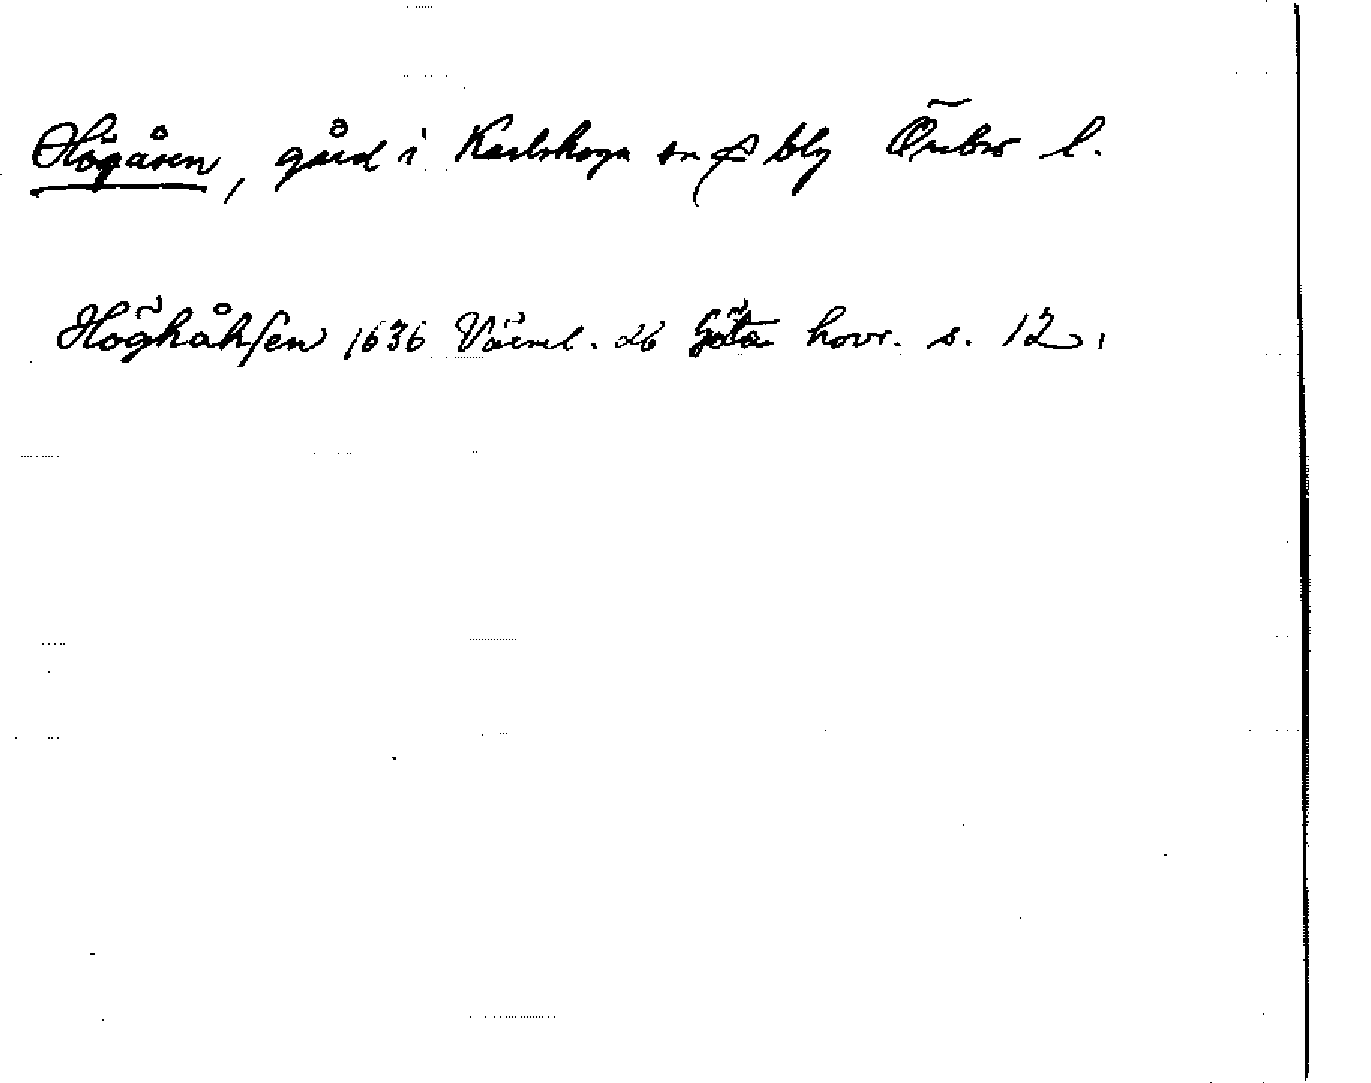 Högåsen, gård i Karlskoga sn o blg Örebro l.
Höghåhsen 1636 Värml. 26 Göta hovr. s. 12,